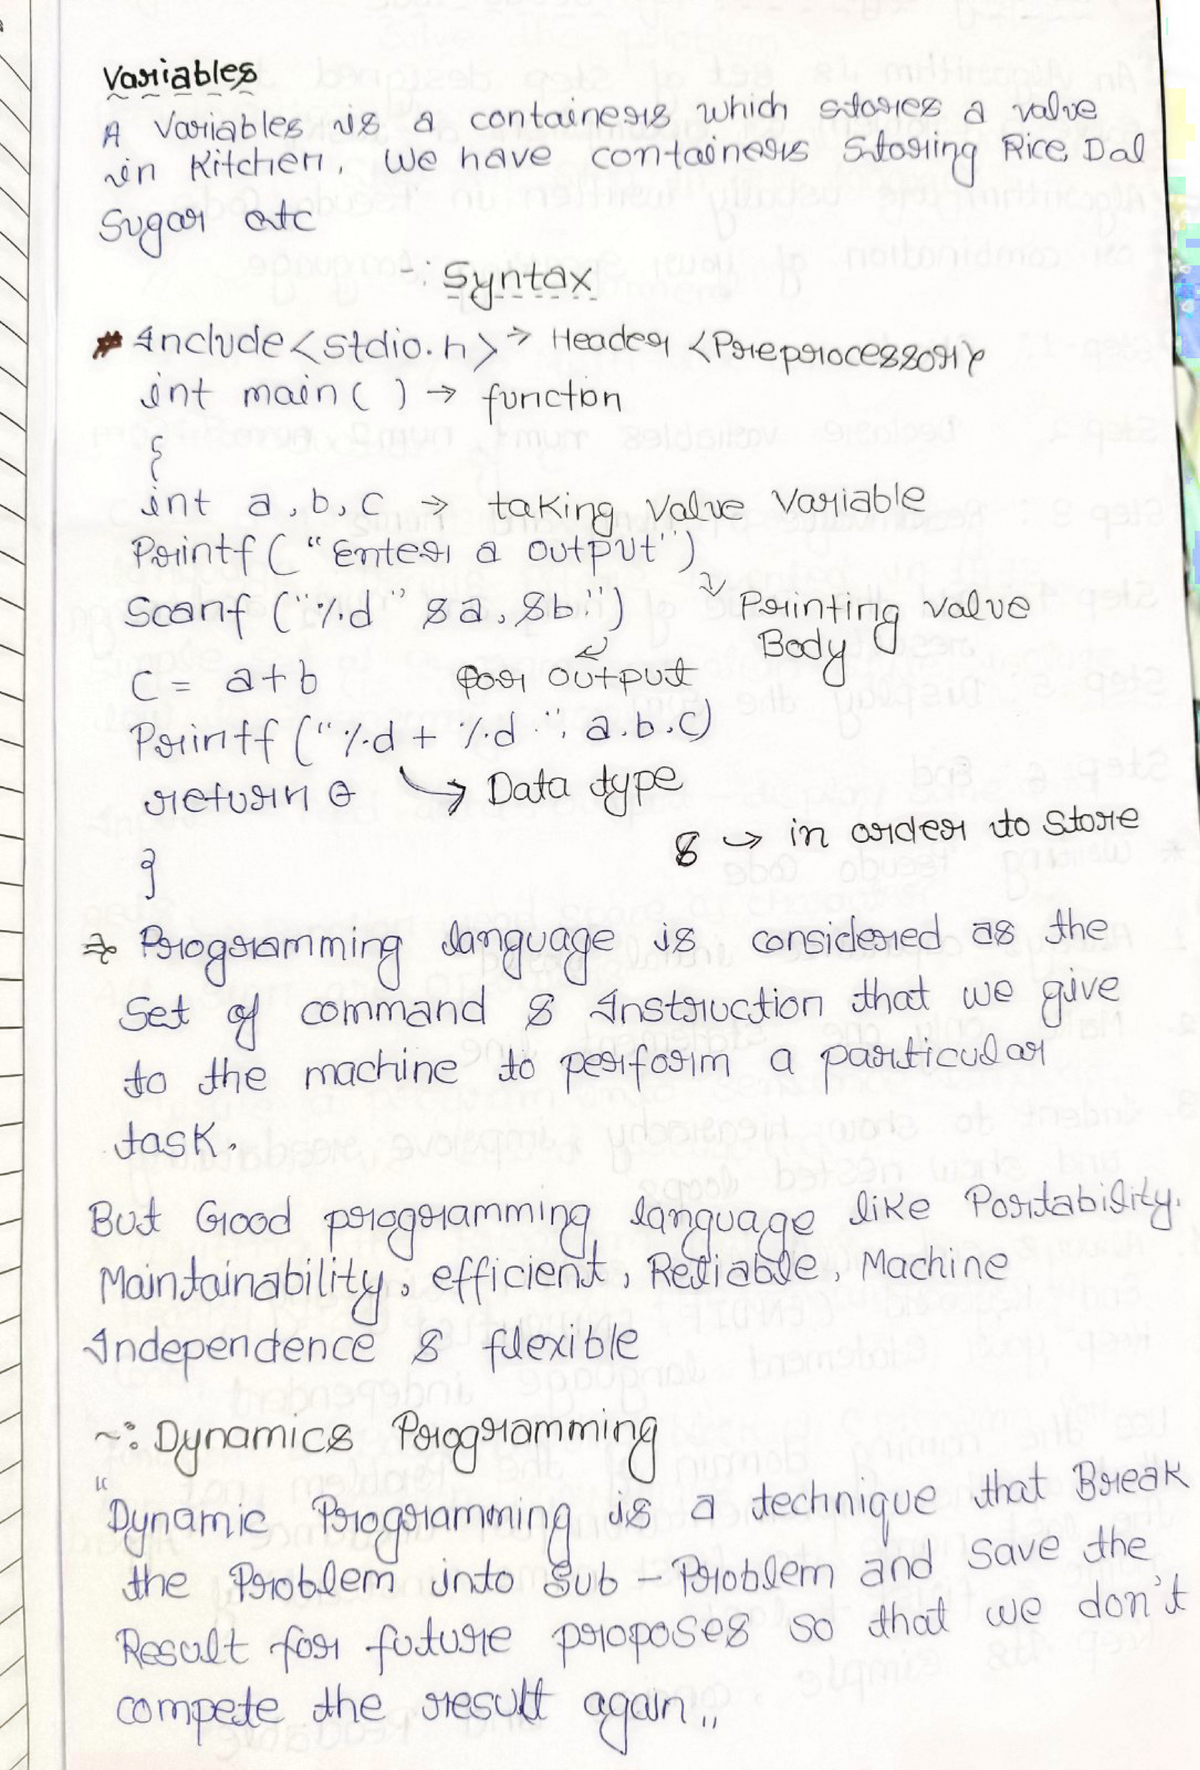 Variables
A Variables is a containers which stores a value
in Kitchen, We have containers Storing Rice, Dal
Sugar etc
-: Syntax
# Include <stdio.h> → Header <Preprocessor>
int main ( ) → function
{
int a, b, c → taking value variable
Printf ( "Enter a output")
Scanf ("%d" &a, &b")
↓ Printing value
Body
C = a+b
for output
Printf ("%d + %d ", a.b.c)
return 0
→ Data type
& → in order to store
}
⇒ Programming language is considered as the
Set of command & Instruction that we give
to the machine to perform a particular
task.
But Good programming language like Portability.
Maintainability, efficient, Reliable, Machine
Independence & flexible
~: Dynamics Programming
"Dynamic Programming is a technique that Break
the Problem into Sub - Problem and save the
Result for future proposes so that we don't
compete the result again,,